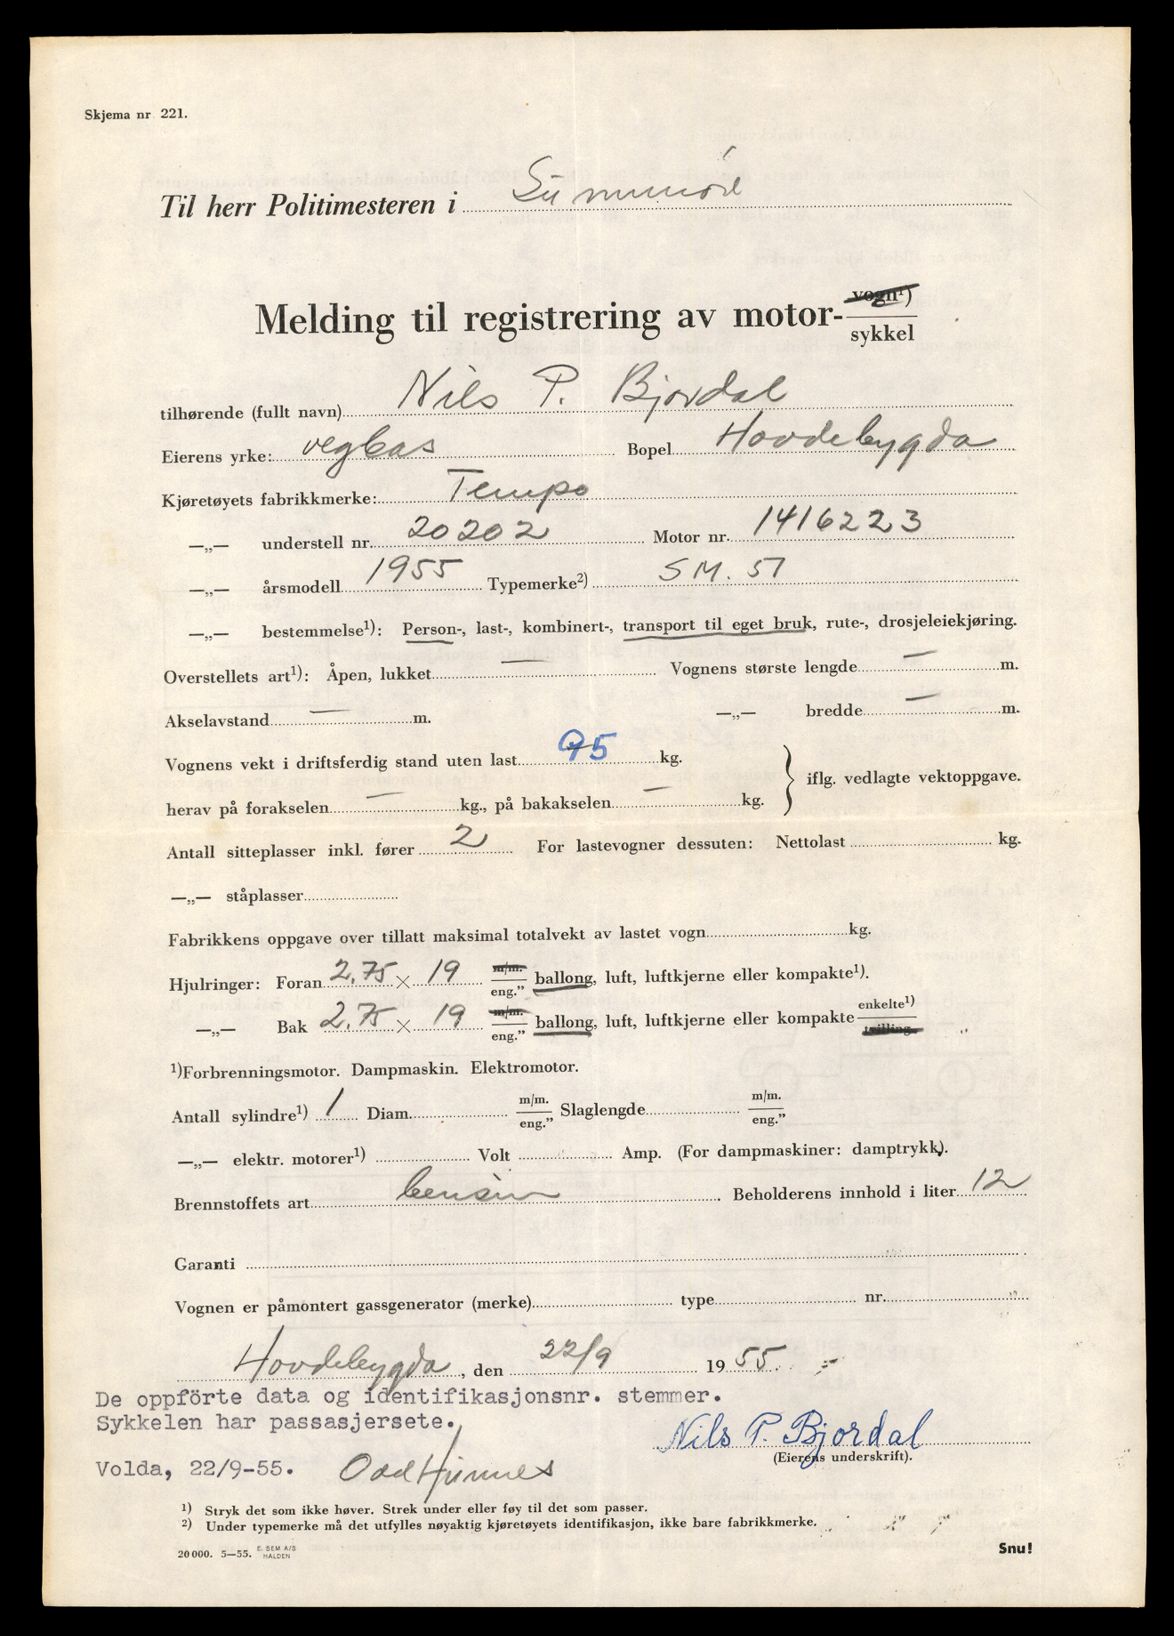 Skjema nr 221.
Til herr Politimesteren i Sunnmøre
Melding til registrering av motor-vogn¹)
sykkel
tilhørende (fullt navn) Nils P. Bjordal
Eierens yrke: vegbas Bopel Hovdebygda
Kjøretøyets fabrikkmerke: Tempo
—„— understell nr. 20202 Motor nr. 1416223
—„— årsmodell 1955 Typemerke²) SM. 51
—„— bestemmelse¹): Person-, last-, kombinert-, transport til eget bruk, rute-, drosjeleiekjøring.
Overstellets art¹): Åpen, lukket — Vognens største lengde — m.
Akselavstand — m. —„— bredde — m.
Vognens vekt i driftsferdig stand uten last 95 kg.
iflg. vedlagte vektoppgave.
herav på forakselen — kg., på bakakselen — kg.
Antall sitteplasser inkl. fører 2 For lastevogner dessuten: Nettolast kg.
—„— ståplasser
Fabrikkens oppgave over tillatt maksimal totalvekt av lastet vogn kg.
Hjulringer: Foran 2.75 × 19 m/m. eng.” ballong, luft, luftkjerne eller kompakte¹).
—„— Bak 2.75 × 19 m/m. eng.” ballong, luft, luftkjerne eller kompakte enkelte¹) tvilling
¹)Forbrenningsmotor. Dampmaskin. Elektromotor.
Antall sylindre¹) 1 Diam. m/m. eng.” Slaglengde m/m. eng.”
—„— elektr. motorer¹) Volt Amp. (For dampmaskiner: damptrykk).
Brennstoffets art bensin Beholderens innhold i liter 12
Garanti
Vognen er påmontert gassgenerator (merke) type nr.
Hovdebygda, den 22/9 1955.
De oppförte data og identifikasjonsnr. stemmer.
Sykkelen har passasjersete.
Nils P. Bjordal
(Eierens underskrift).
Volda, 22/9-55. Odd Humnes
¹) Stryk det som ikke høver. Strek under eller føy til det som passer.
²) Under typemerke må det utfylles nøyaktig kjøretøyets identifikasjon, ikke bare fabrikkmerke.
20000. 5—55. E. SEM A/S HALDEN
Snu!